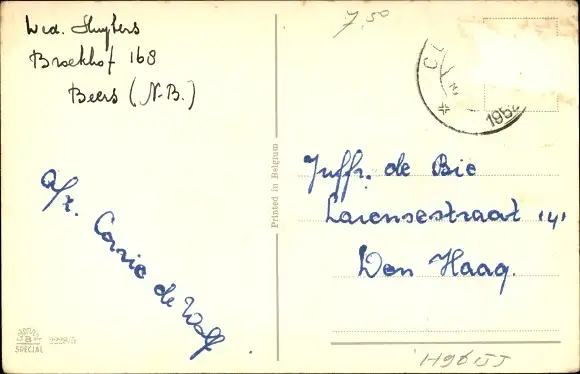 Wed. Huybers
Broekhof 168
Beers (N-B.)
a/z. Corrie de Wolf
SPECIAL
Printed in Belgium
7,50
1952
Juffr. de Bie
Larensestraat 141
Den Haag.